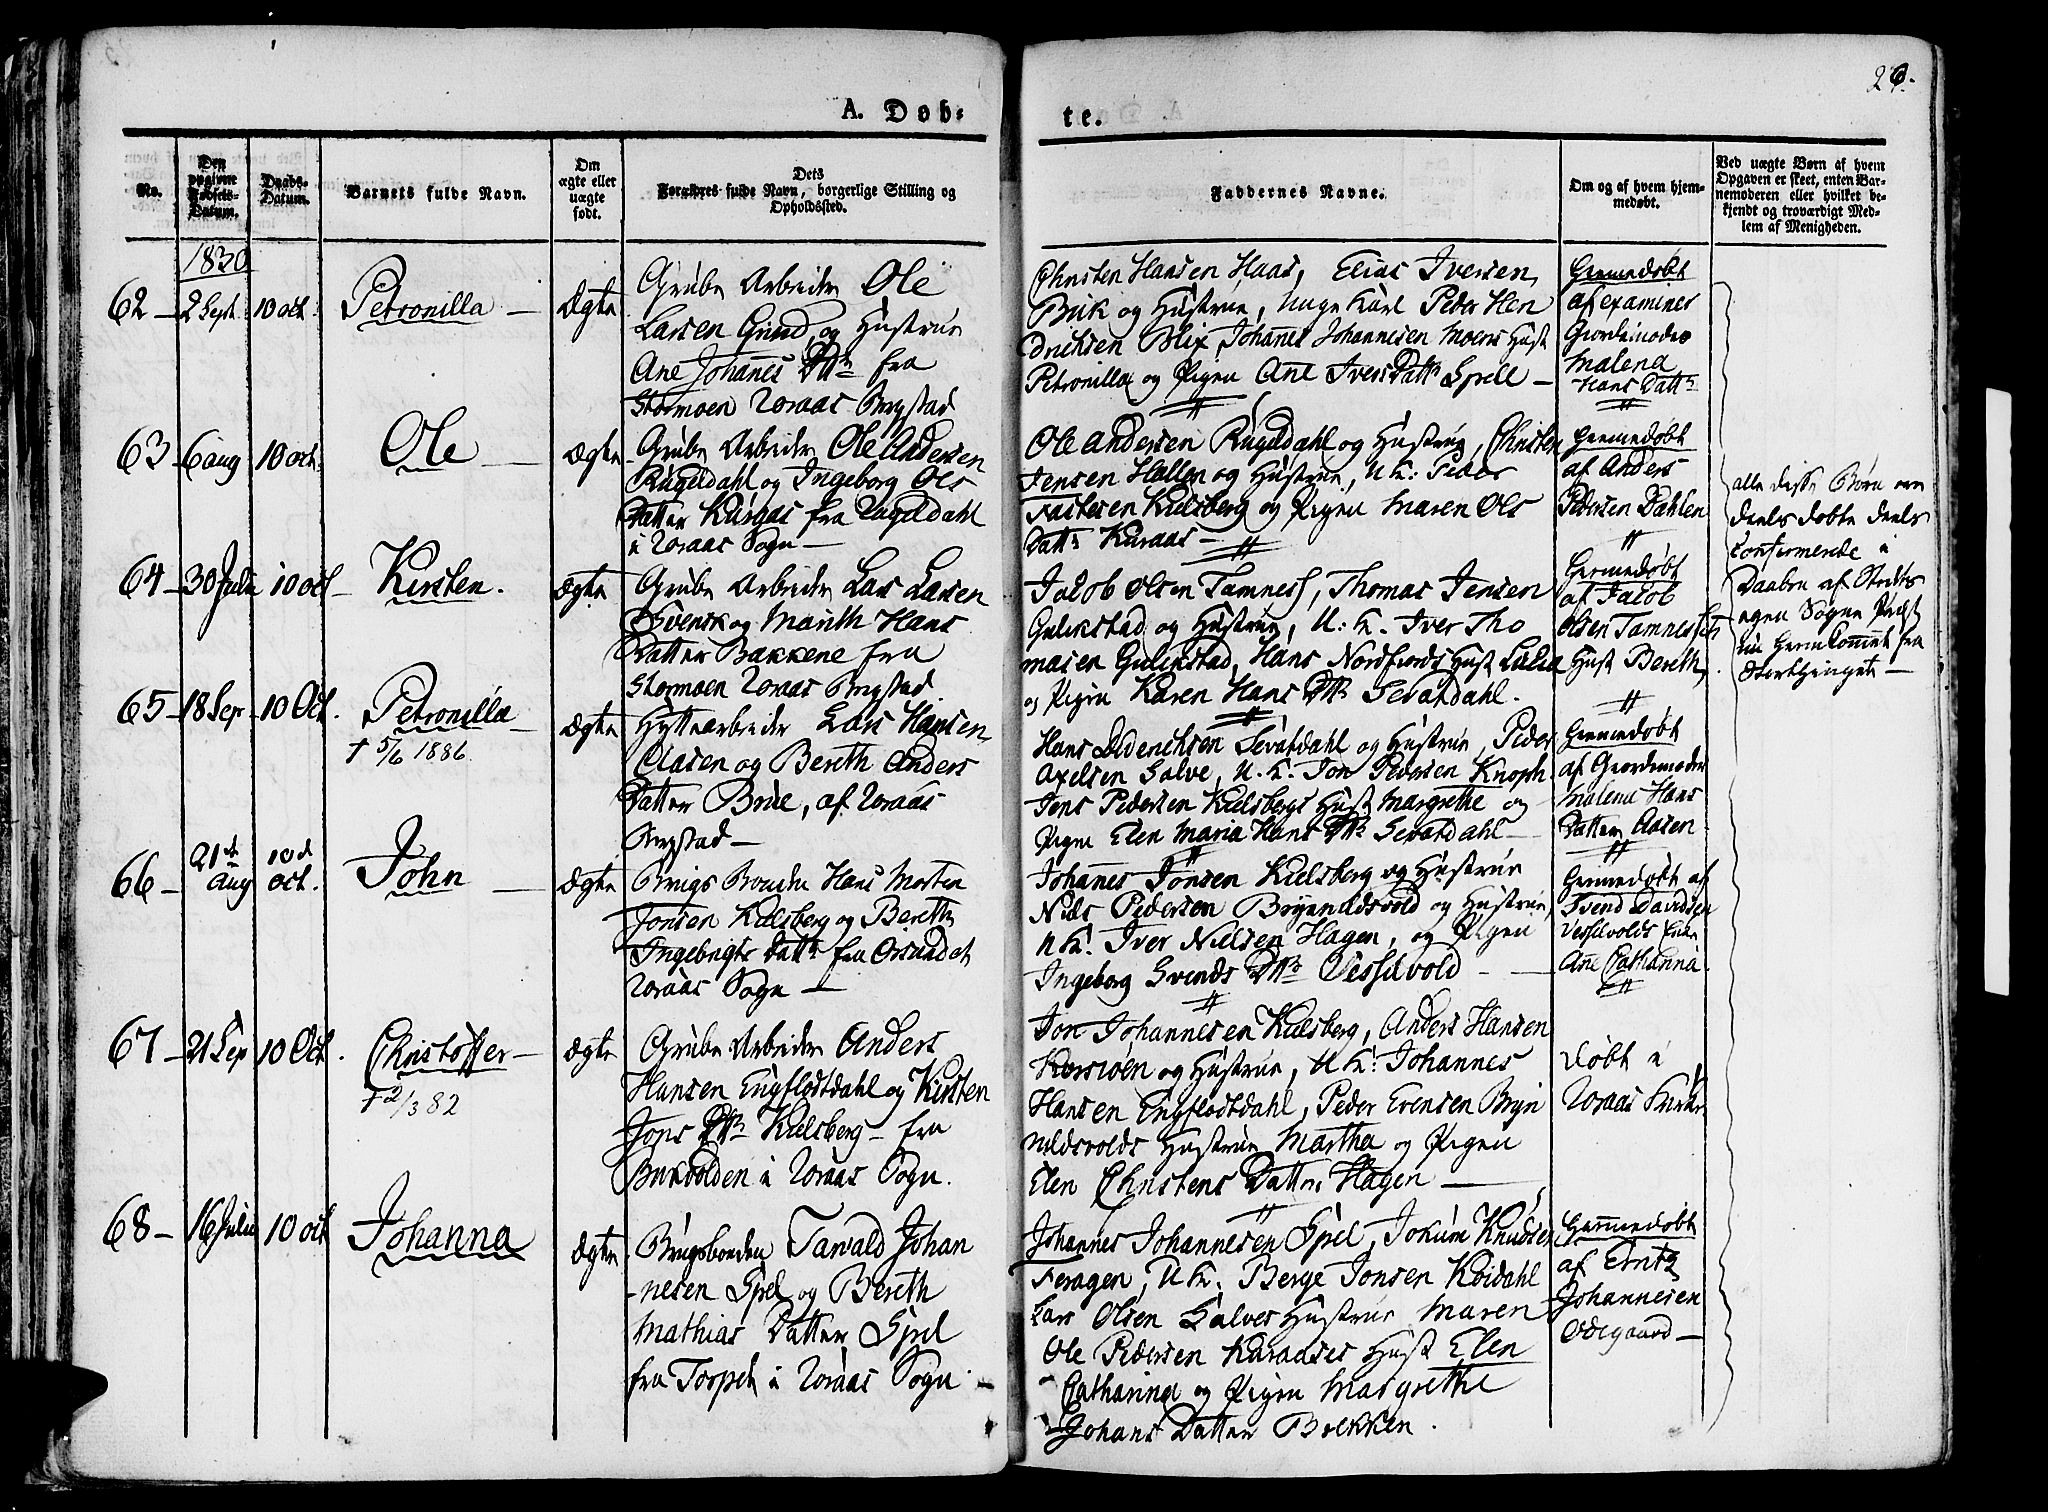 26.
A. Døb-
te.
No.
Den opgivne Fødsels-Datum.
Daabs-Datum.
Barnets fulde Navn.
Om ægte eller uægte født.
Dets Forældres fulde Navn, borgerlige Stilling og Opholdssted.
Faddernes Navne.
Om og af hvem hjemmedøbt.
Ved uægte Børn af hvem Opgaven er skeet, enten Barnemoderen eller hvilket bekjendt og troværdigt Medlem af Menigheden.
1830
62 - 2 Sept. 10 oct. Petronilla - Ægte
Grube Arbeider Ole
Larsen Grind, og Hustrue
Ane Johannes Dtter fra
Stormoen Røraas Bergstad
Christen Hansen Haas, Elias Iversen
Brik og Hustrue, Unge Karl Peder Hen
drichsen Blix, Johannes Johannesen Moens Hust
Petronilla og Pigen Ane Ivers Datter Sprell -
Hiemedøbt
af examineret
Giordemoder
Malena
Hans Datter
63 - 6 aug 10 oct. Ole - ægte
Grube Arbeider Ole Andersen
Rugeldahl og Ingeborg Ols
Datter Kuraas fra Rugeldahl
i Røraas Sogn -
Ole Andersen Rugeldahl og Hustrue, Christen
Jensen Hallen og Hustrue, U K: Peder
Fastesen Kuelsberg og Pigen Maren Ols
Datter Kuraas -
Hiemedøbt
af Anders
Pedersen Dahlen
64 - 30 Julii 10 oct - Kirsten. ægte
Grube Arbeider Lars Larsen
Svensk og Marith Hans
Datter Bakkene fra
Stormoen Røraas Bergstad.
Jacob Olsen Tamness, Thomas Jensen
Gulikstad og Hustrue, U: K. Iver Tho
masen Gulikstad, Hans Nordfiords Hust
og Pigen Karen Hans Dtter Sevatdahl.
Hiemedøbt
af Jacob
Olsen Tamness
Hust Bereth
65 - 18 Sep - 10 Oct. Petronilla - ægte
† 5/6 1886.
Hytte arbeider Lars Hansen
Claesen og Bereth Anders
Datter Brue, af Røraas
Bergstad -
Hans Diderichsen Sevatdahl og Hustrue, Peder
Axelsen Salve, U. K. Jon Pedersen Knoph
Jens Pedersen Kuelsbergs Hust Margrethe og
Pigen Elen Maria Hans Dtter Sevatdahl -
Hiemedøbt
af Giordemoder
Malena Hans
Datter Aasen
66 - 21de Aug 10de oct. John - ægte
Brugs Bonden Hans Morten
Jonsen Kuelsberg og Bereth
Ingebrigts Datter fra
Røraas Sogn -
Johannes Jonsen Kuelsberg og Hustrue
Niels Pedersen Brynildsvold og Hustrue,
U K. Iver Nielsen Hagen, og Pigen
Ingeborg Svends Dtter Vessilvold -
Hiemedøbt af
Svend Davidsen
Vessilvolds
Ane Catharina
67 - 21 Sep 10 Oct. Christoffer - ægte
† 2/3 82
Grube Arbeider Anders
Hansen Engflodtdahl og Kirsten
Jons Dtter Kuelsberg - fra
Bukvolden i Røraas Sogn.
Jon Johannesen Kuelsberg, Anders Hansen
Korssiøen og Hustrue, U K: Johannes
Hansen Engflodtdahl, Peder Evensen Bryn
nildsvolds Hustrue Martha og Pigen
Elen Christens Datter Hagen -
Døbt i
Røraas Kirke
68 - 16 Julii 10 oct Johanna ægte
Brugsbonden Tarvald Johan
-nesen Sprel og Bereth
Mathias Datter Sprel
fra i Røraas Sogn -
Johannes Johannesen Sprel, Jokum Knudsen
Feragen, U K. Berge Jonsen Koidahl
Lars Olsen Galves Hustrue Maren
Ole Pedersen Kuraases Hust Elen
Catharina og Pigen Margrethe
Johans Datter Bekken.
Hiemedøbt
af
Johannesen
Ødegaard -
alle disse Børn ere
deels døbte deels
Confirmerede i
Daaben af Stedets
egen Sogne Præst
nu hiemkommet fra
Storthinget -